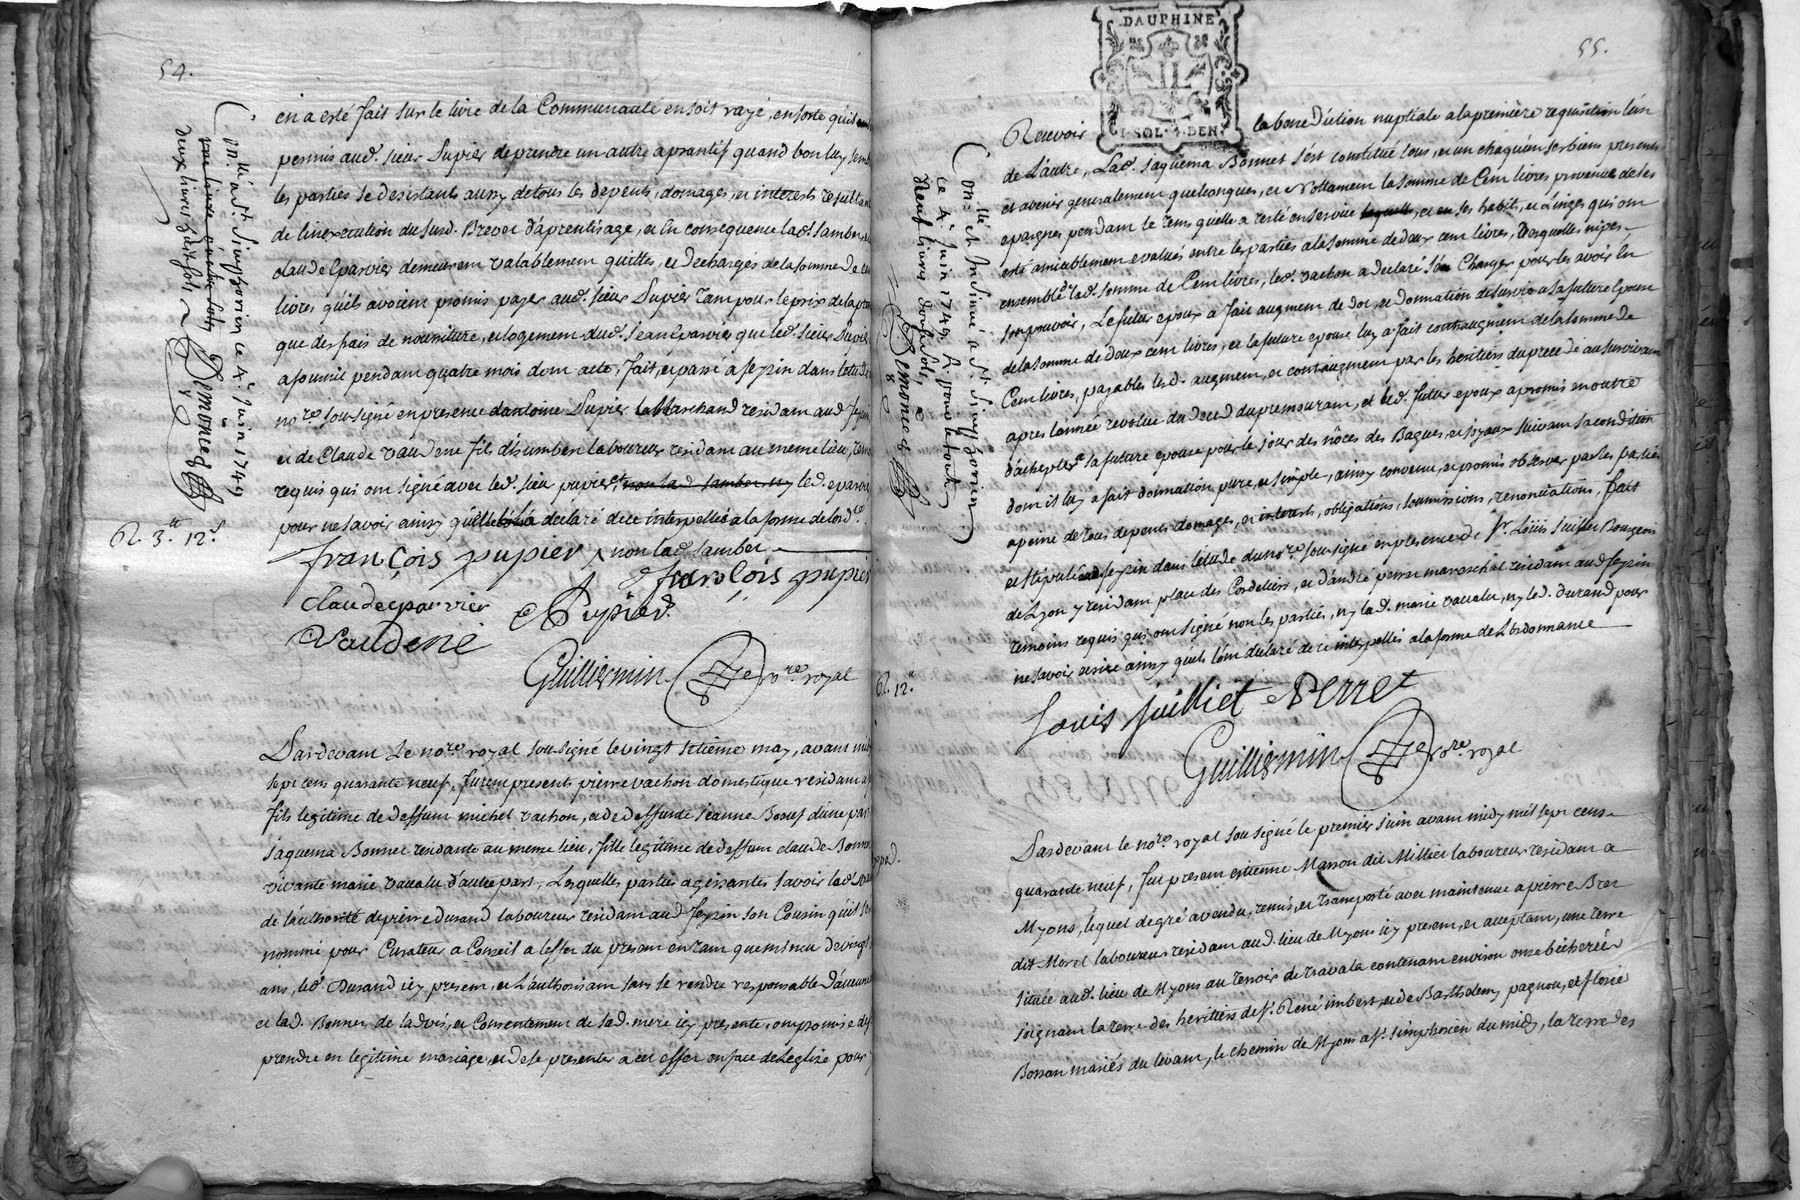 54.
en a esté fait sur le livre de la Communauté en soit rayé, en sorte qu'il
permis aud. sieur Pupier de prendre un autre aprantif quand bon luy
les parties se desistants aussy de tous les depents, domages, et interests
de linexecution dususd. Brevet d'aprentisage, et En consequence lad. Jamber
claude Eparvier demeurent valablement quittes, et decharges de la somme de
livres qu'ils avoient promis payer aud. sieur Pupier tam pour le prix de
que des frais de nourriture, et logement dud. Jean Eparvier que led. sieur Pupier
a fourni pendam quatre mois dont acte, fait, et passé a feyzin dans
no.re sousigné en presence dantoine Pupier Marchand residam aud. feyzin
et de Claude vaudene fils d'humbert laboureur residam au meme lieu,
requis qui ont signé avec led. sieur pupier, non lad. Jamber ny led.
pour ne savoir ainsy declaré de ce interpellée a la forme de lord.ce
R. 3.tt 12.s
françois pupier non lad. Jamber
françois pupier
claude eparvier
Vaudene
Guilliermin no.re royal
Con.lé a S.t Simphorien ce 4.e Juin 1749
deux livres huit sols
Demoncel
Pardevam Le no.re royal sousigné le vingt setième may, avant
sept cens quarante neuf, furent presents pierre vachon domestique residam
fils legitime de deffunt michel vachon, et de deffunte jeanne Boeuf d'une part
Jaquema Bonnet residante au meme lieu, fille legitime de deffunt claude Bonnet
vivante marie vaualu d'autre part, Lesquelles parties agissantes savoir lad.
de l'authorité de pierre Durand laboureur residam aud feyzin son Cousin quil
nommé pour Curateur a Conseil a leffet du presem entam que mineur de vingt
ans, led. Durand icy presem, et L'authorisam sans se rendre responsable d'aucune
et lad. Bonnet de Ladvis, et Consentement de sad. mere icy presente, om promis
prendre en legitime mariage, et de se presenter a cet effet en face de Leglise pour
55.
DAUPHINE
1 SOL. 4. DEN
Recevoir la benediction nuptiale a la première requisition l'un
de L'autre, Lad. Jaquema Bonnet s'est constitué tous, et un chaqu'un ses biens presents
et avenir generalement quelconques, et Nottament la somme de Cent livres provenue de ses
epargnes pendam le tems quelle a resté en service, et en ses habits, et Linges qui ont
esté amiablement evalués entre les parties a la somme de deux cent livres, desquelles nipes
ensemble lad. somme de Cent livres, led. vachon a declaré s'en Charger pour les avoir En
son pouvoir, Le futur epoux a fait augment de dot, et donnation de survie a sa future Epouse
de la somme de deux cent livres, et la future epouse luy a fait contraugment de la somme de
Cent livres, payables lesd. augment, et contraugment par les heritiers du precedé au survivam
apres l'année revolue du deced du premourant, et led. futur epoux a promis en outre
d'achepter a sa future epouse pour le jour des nôces des Bagues, et joyaux suivam sa condition
dont il luy a fait donnation pure, et simple, ainsy convenu, et promis observer par les parties
a peine de tous depents domages, et interests, obligations, soumissions, renonciations, fait
et stipulé aud. feyzin dans letude du no.re sousigné en presence de s.r Louis Juillet Bourgeois
de Lyon y residam place des Cordeliers, et d'andré perret mareschal residam aud feyzin
temoins requis qui ont signé non les parties, ny lad. marie vaualu, ny led. durand pour
ne savoir ecrire ainsy quils l'ont declaré de ce interpellés a la forme de L'ordonnance
R. 12.s
Louis Juilliet A Perret
Guilliermin no.re royal
Con.lé et Insinué a S.t Simphorien
ce 4.e Juin 1749
Neuf livres douze sols
Demoncel
Pardevant le no.re royal sousigné le premier Juin avant midy mil sept cens
quarante neuf, fut presem estienne Masson dit Millier laboureur residam a
Myons, lequel de gré a vendu, remis, et transporté avec maintenue a pierre Bret
dit Morel laboureur residam aud. lieu de Myons icy presem, et acceptam, une terre
située aud. lieu de Myons au teroir de travala contenam environ onze bicherées
joignam la terre des heritiers de s.r René imbert, et de Barthelemy pagnou, et florie
Bossan mariés du levant, le chemin de Myons a s.t simphorien du midy, la terre des